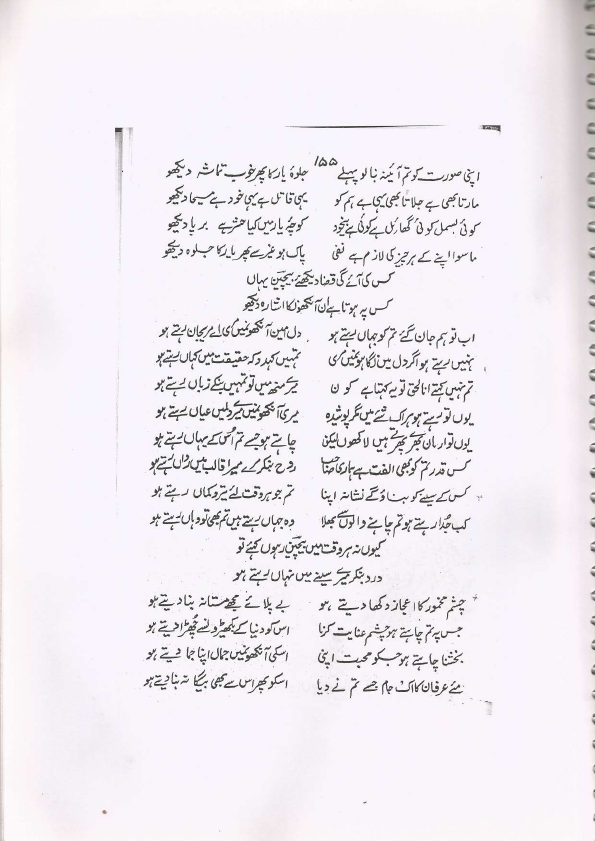 ۱۵۵
اپنی صورت کو تم آئینہ بنا لو پہلے جلوۂ یار کا پھر خوب تماشہ دیکھو
مارتا بھی ہے جلاتا بھی یہی ہے ہم کو یہی قاتل ہے یہی خود ہے مسیحا دیکھو
کوئی بسمل کوئی گھائل ہے کوئی ہے بیخود کوچۂ یار میں کیا حشر ہے برپا دیکھو
ماسوا اپنے کے ہر چیز کی لازم ہے نفی پاک ہو غیر سے پھر یار کا جلوہ دیکھو
کس کی آئے گی قضا دیکھئے بیچین یہاں
کس پہ ہوتا ہے ان آنکھوں کا اشارہ دیکھو
اب تو ہم جان گئے تم کو جہاں رہتے ہو دل میں آنکھوں میں مری اے مری جان رہتے ہو
نہیں رہتے ہو اگر دل میں نگاہوں میں مری تمہیں کہدو کہ حقیقت میں کہاں رہتے ہو
تم نہیں کہتے انا الحق تو یہ کہتا ہے کون میرے منھ میں تو تمہیں بنکے زباں رہتے ہو
یوں تو رہتے ہو ہر اک شئے میں مگر پوشیدہ میری آنکھوں میں میرے دل میں عیاں رہتے ہو
یوں تو ارمان بھرے پھرتے ہیں لاکھوں لیکن چاہتے ہو جسے تم اُس کے یہاں رہتے ہو
کس قدر تم کو بھی الفت ہے ہماری صاحب روح بنکر مرے میرا قالب میں رواں رہتے ہو
کس کے سینے کو بناؤ گے نشانہ اپنا تم جو ہر وقت لئے تیر و کماں رہتے ہو
کب جُدا رہتے ہو تم چاہنے والوں سے بھلا وہ جہاں رہتے ہیں تم بھی تو وہاں رہتے ہو
کیوں نہ ہر وقت میں بیچین رہوں کہئے تو
درد بنکر میرے سینے میں نہاں رہتے ہو
چشم مخمور کا اعجاز دکھا دیتے ہو بے پلائے مجھے مستانہ بنا دیتے ہو
جس پہ تم چاہتے ہو چشم عنایت کرنا اس کو دنیا کے بکھیڑوں سے چُھڑا دیتے ہو
بخشنا چاہتے ہو جسکو محبت اپنی اسکی آنکھوں میں جمال اپنا جما دیتے ہو
مئے عرفان کا اک جام جسے تم نے دیا اسکو پھر اس سے بھی بیگانہ بنا دیتے ہو